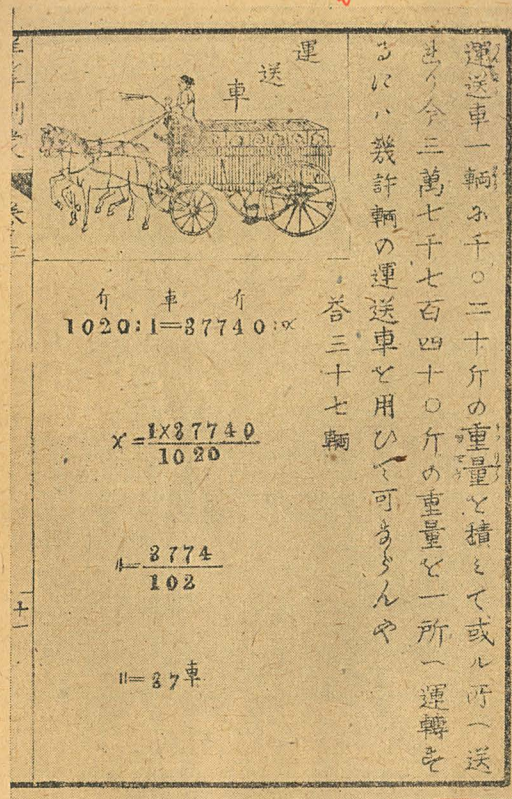 運送車一輌ニ千〇二十斤の重量を積ミて或ル所ヘ送
れり今三萬七千七百四十〇斤の重量を一所ヘ運轉す
るにハ幾許輌の運送車を用ひて可ならんや
答三十七輌
運送車
斤 車 斤
1020:1=37740:x
x=1×37740/1020
〃=3774/102
〃=37車
十一